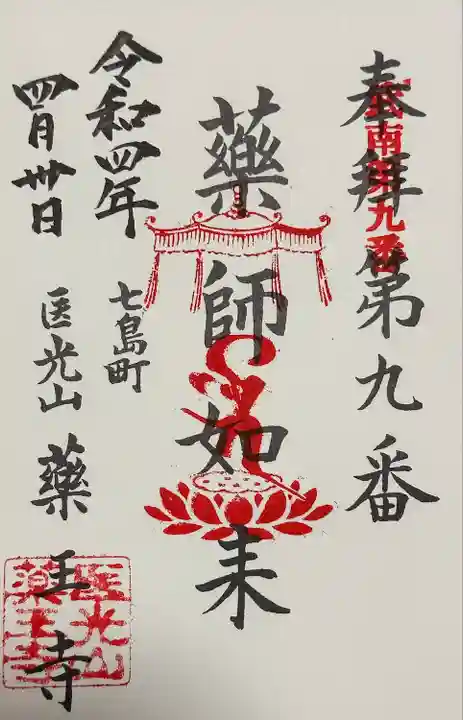 奉拝 第九番
武南第九番
藥師如来
令和四年
四月卅日
七島町
医光山 藥王寺
医光山
薬王寺